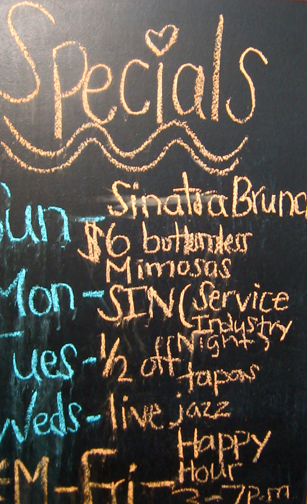 Specials
Sun- Sinatra Brunc
$6 bottomless
Mimosas
Mon- SIN (Service
Industry
Night)
Tues- 1/2 off
tapas
Weds- live jazz
M-Fri- Happy
Hour
3-7pm